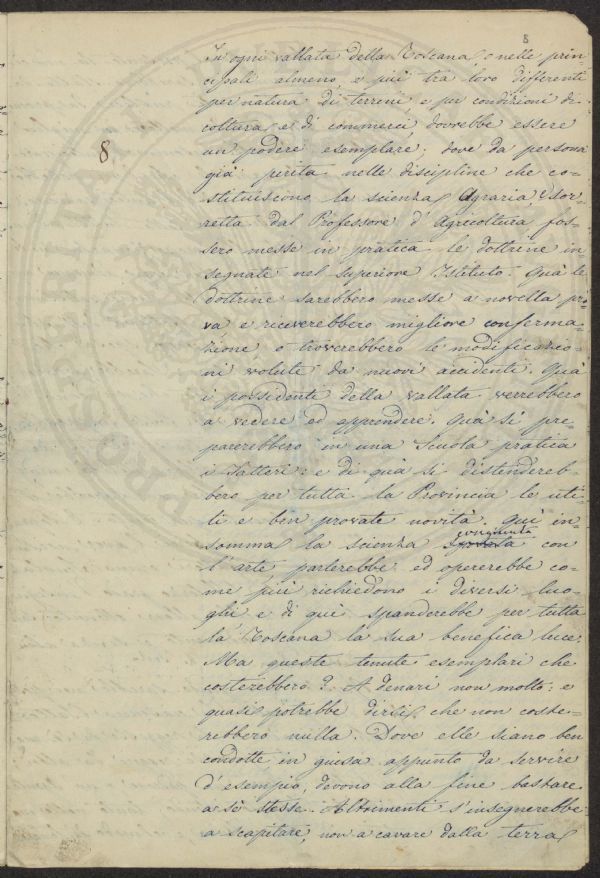 8
8
In ogni vallata della Toscana, o nelle prin=
cipali almeno, e più tra loro differenti
per natura di terreni e per condizioni di
coltura, e di commerci, dovrebbe essere
un podere esemplare; dove da persona
già perita nelle discipline che co=
stituiscono la scienza Agraria, e sor=
retta dal Professore d'Agricoltura fos=
sero messe in pratica le dottrine in=
segnate nel superiore Istituto. Quà le
dottrine sarebbero messe a novella pro
va e riceverebbero migliore conferma=
zione, o troverebbero le modificazio=
ni volute da nuovi accidenti. Quà
i possidenti della vallata verrebbero
a vedere ed apprendere. Quà si pre
parerebbero in una Scuola pratica
i Fattori: e di quà si distendereb=
bero per tutta la Provincia le uti
li e ben provate novità. Quì in=
somma la scienza congiunta con
l'arte parlerebbe ed opererebbe co=
me più richiedono i diversi luo=
ghi e di quì spanderebbe per tutta
la Toscana la sua benefica luce.
Ma queste tenute esemplari che
costerebbero? A denari non molto: e
quasi potrebbe dirsi che non coste=
rebbero nulla. Dove elle siano ben
condotte in guisa appunto da servire
d'esempio, devono alla fine bastare
a sè stesse. Altrimenti s'insegnerebbe
a scapitare, non a cavare dalla terra